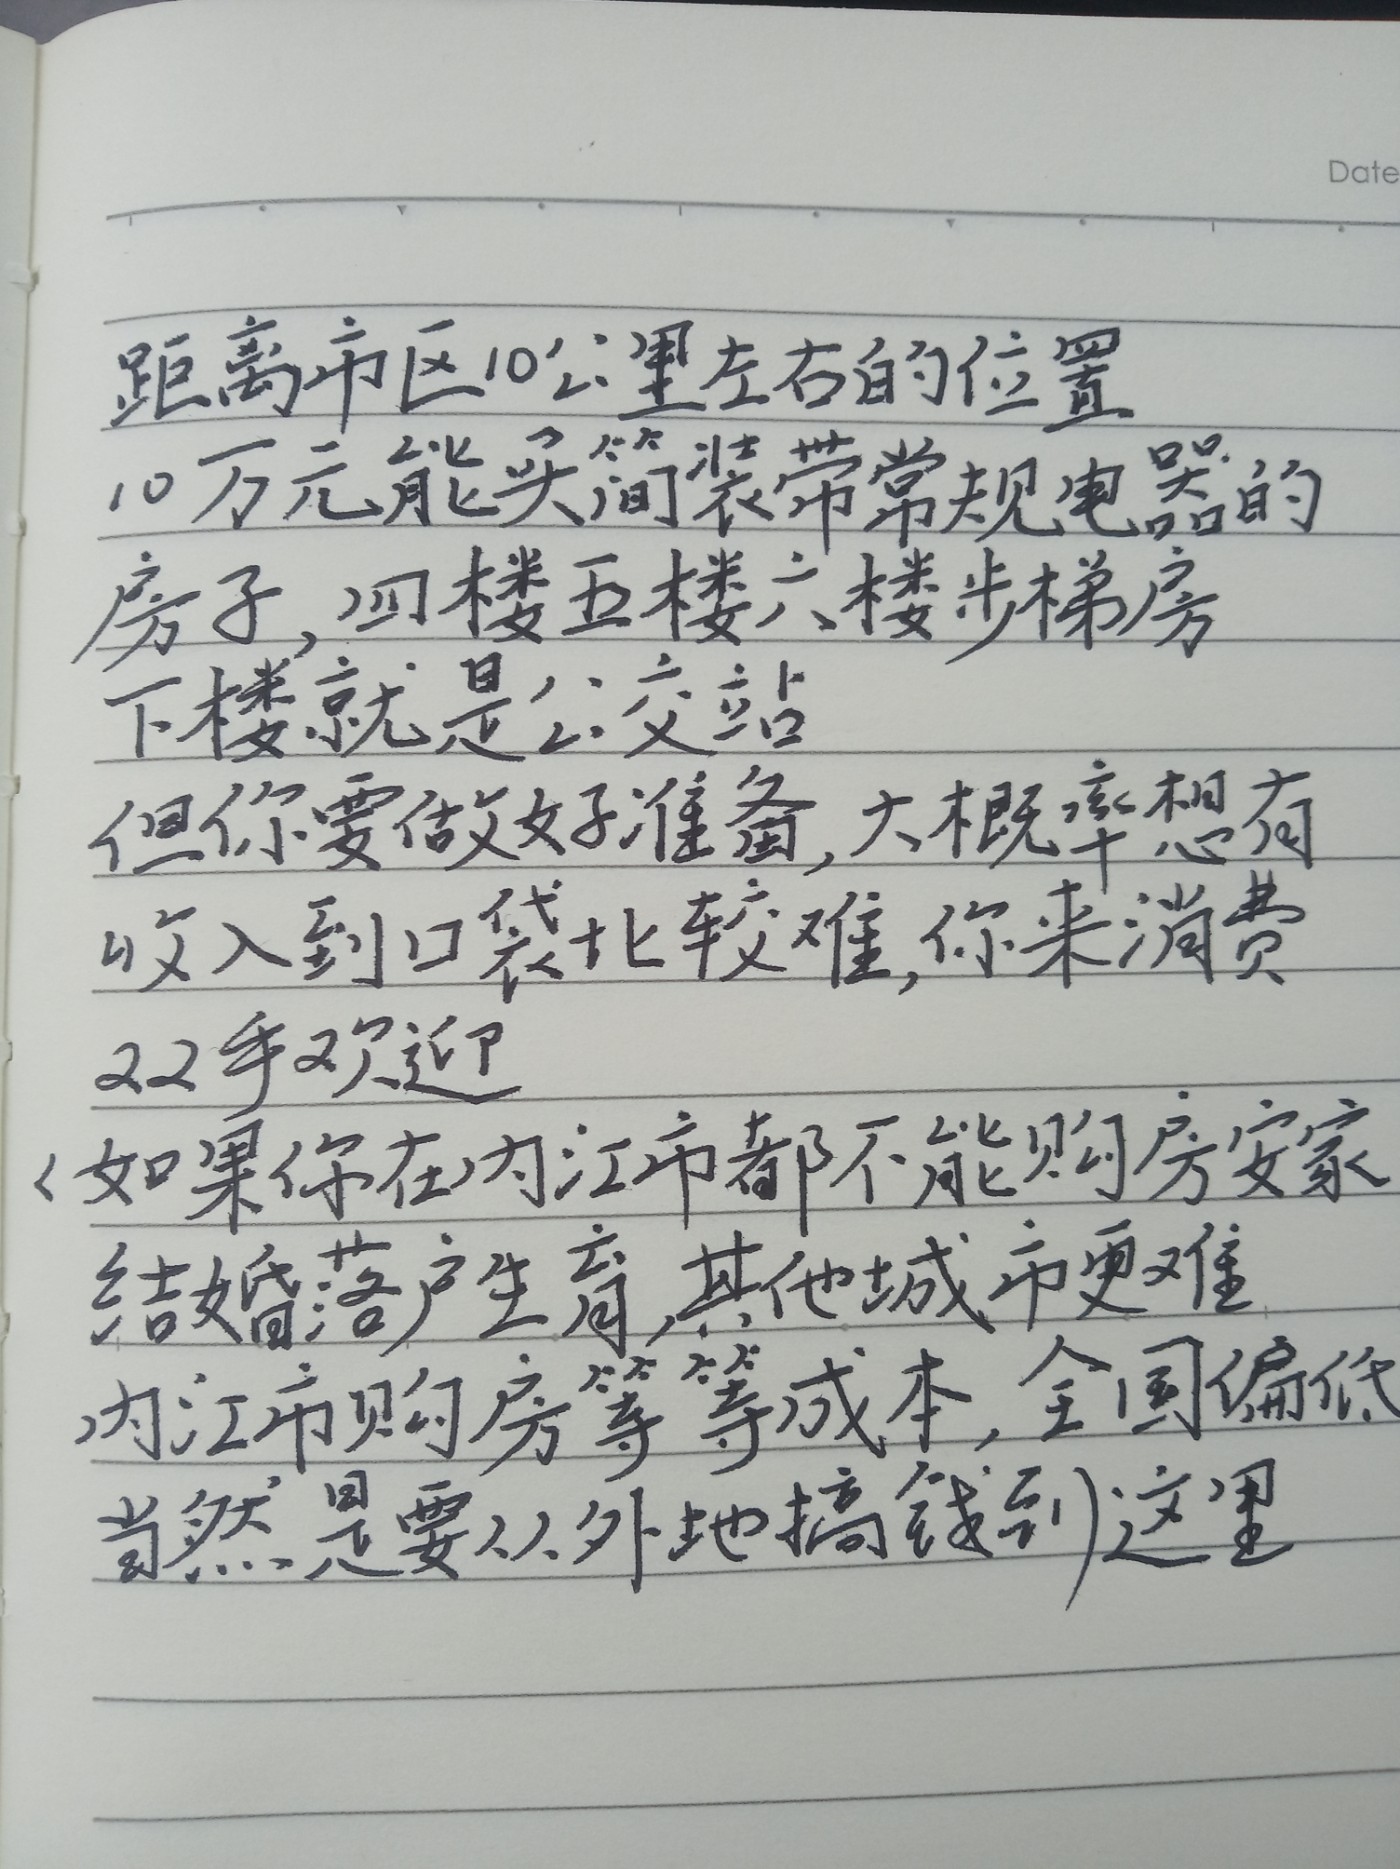 Date
距离市区10公里左右的位置
10万元能买简装带常规电器的
房子,四楼五楼六楼步梯房
下楼就是公交站
但你要做好准备,大概率想有
收入到口袋比较难,你来消费
22手欢迎
<如果你在内江市都不能购房安家
结婚落户生育,其他城市更难
内江市购房等等成本,全国偏低
当然是要从外地搞钱到这里